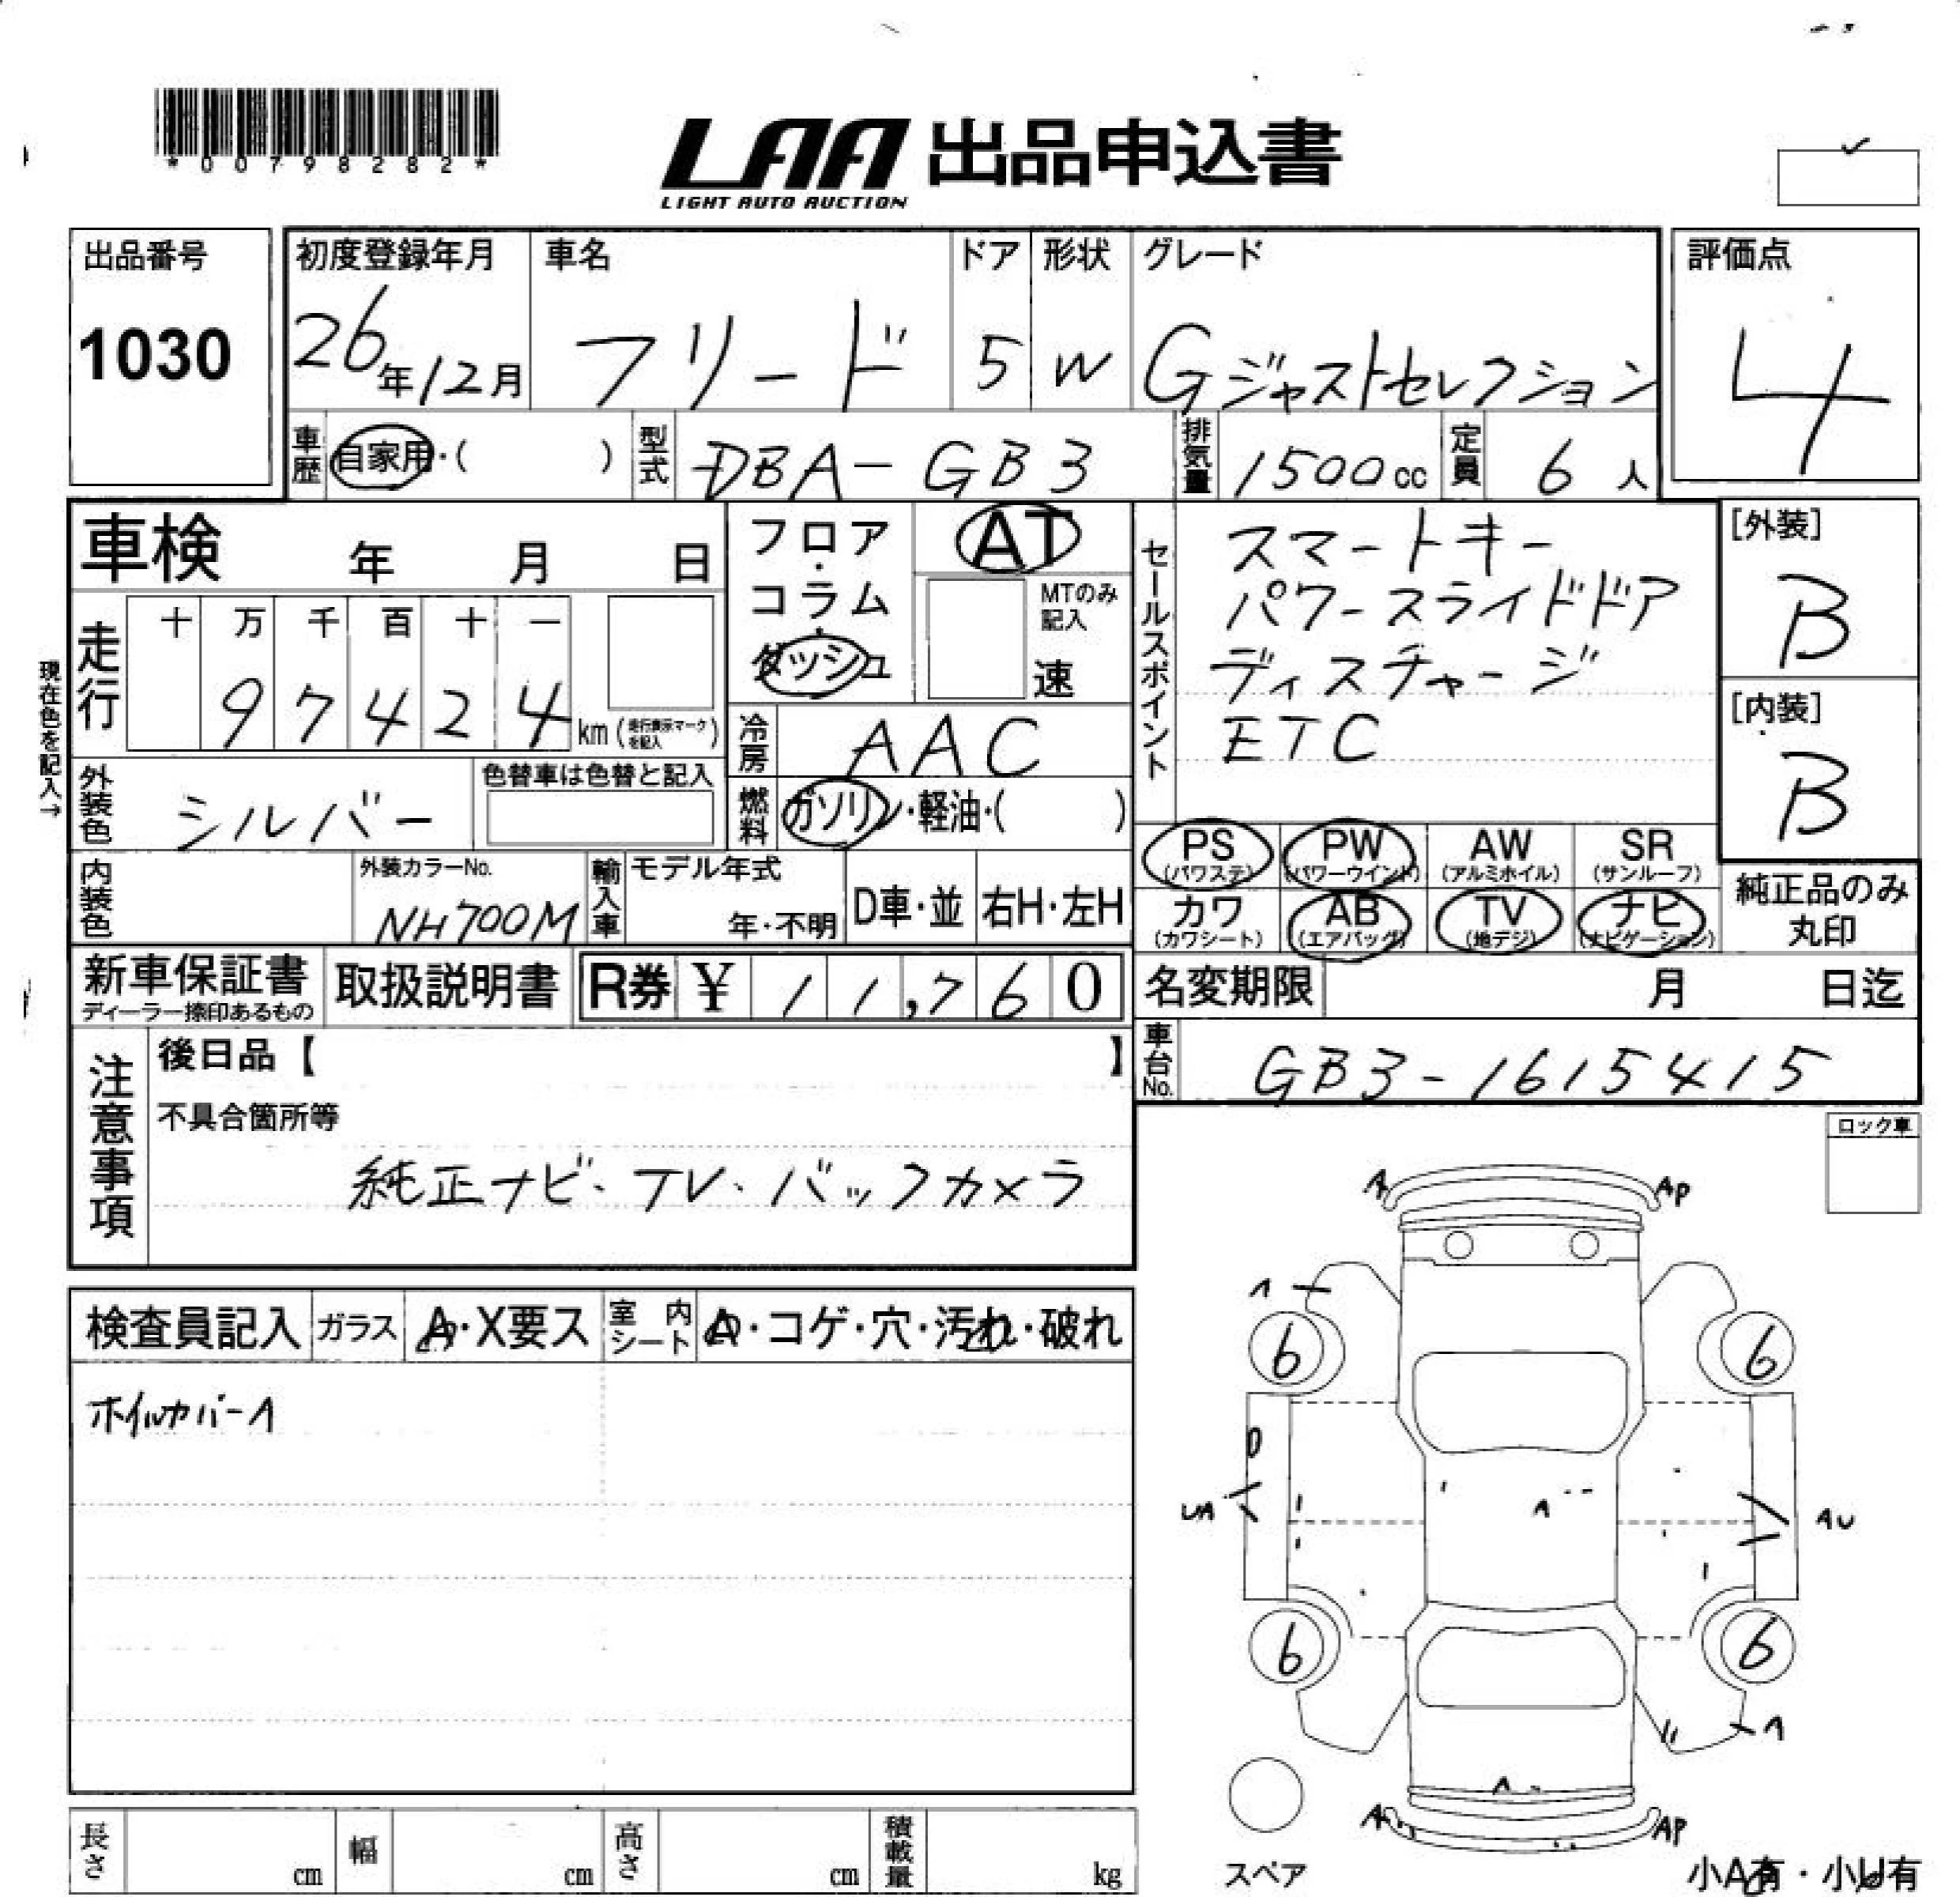 *00798282*
LAA 出品申込書
LIGHT AUTO AUCTION
出品番号
1030
初度登録年月
26年12月
車名
フリード
ドア
5
形状
W
グレード
Gジャストセレクション
評価点
4
車歴 自家用・( )
型式 DBA-GB3
排気量 1500cc
定員 6人
車検 年 月 日
フロア・コラム・ダッシュ
AT
MTのみ記入
速
セールスポイント
スマートキー
パワースライドドア
ディスチャージ
ETC
[外装]
B
[内装]
B
現在色を記入→
走行
十 万 千 百 十 一
9 7 4 2 4 km (走行表示マークを記入)
冷房 AAC
外装色 シルバー
色替車は色替と記入
燃料 ガソリン・軽油・( )
PS (パワステ)
PW (パワーウインド)
AW (アルミホイル)
SR (サンルーフ)
カワ (カワシート)
AB (エアバッグ)
TV (地デジ)
ナビ (ナビゲーション)
純正品のみ丸印
内装色
外装カラーNo.
NH700M
輸入車
モデル年式
年・不明
D車・並
右H・左H
新車保証書
ディーラー捺印あるもの
取扱説明書
R券 ¥ 11,760
名変期限 月 日迄
車台No. GB3-1615415
注意事項
後日品【 】
不具合箇所等
純正ナビ・TV・バックカメラ
ロック車
検査員記入
ガラス A・X要ス
室内シート A・コゲ・穴・汚れ・破れ
ホイルカバーA
A AP
A
6 6
D
UA A AU
6 6
A
A
A AP
スペア
小A有・小U有
長さ cm
幅 cm
高さ cm
積載量 kg